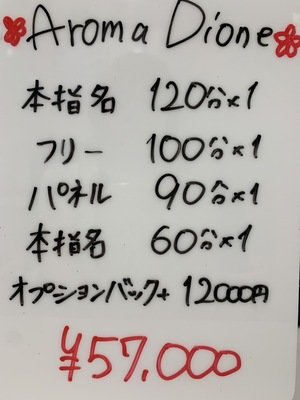 Aroma Dione
本指名 120分×1
フリー 100分×1
パネル 90分×1
本指名 60分×1
オプションバック+ 12000円
¥57,000